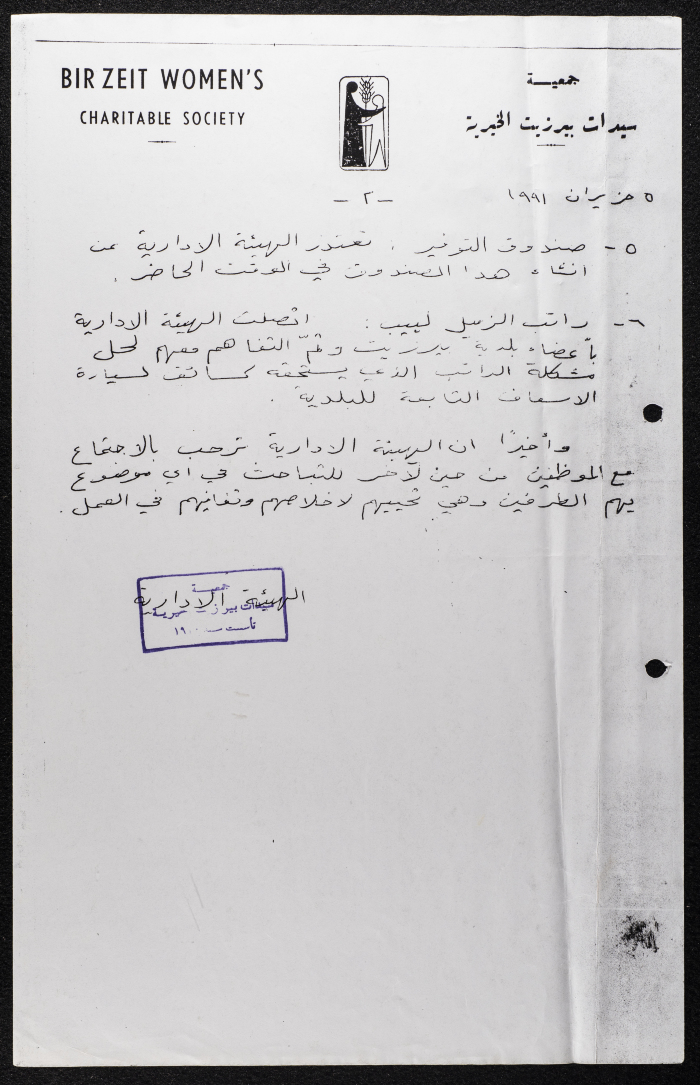 BIR ZEIT WOMEN'S
CHARITABLE SOCIETY
جمعيـــة
سيدات بيرزيت الخيرية
٥ حزيران ١٩٩١
- ٢ -
٥ - صندوق التوفير : تعتذر الهيئة الادارية عن
انشاء هذا الصندوق في الوقت الحاضر .
٦ - راتب الزميل لبيب : اتصلت الهيئة الادارية
بأعضاء بلدية بيرزيت وتمّ التفاهم معهم لحل
مشكلة الراتب الذي يستحقه كسائق لسيارة
الاسعاف التابعة للبلدية .
وأخيرًا ان الهيئة الادارية ترحب بالاجتماع
مع الموظفين من حين لآخر للتباحث في أي موضوع
يهم الطرفين وهي تحييهم لاخلاصهم وتفانيهم في العمل .
الهيئة الادارية
جمعيـــة
سيدات بيرزيت الخيرية
تأسست سنة